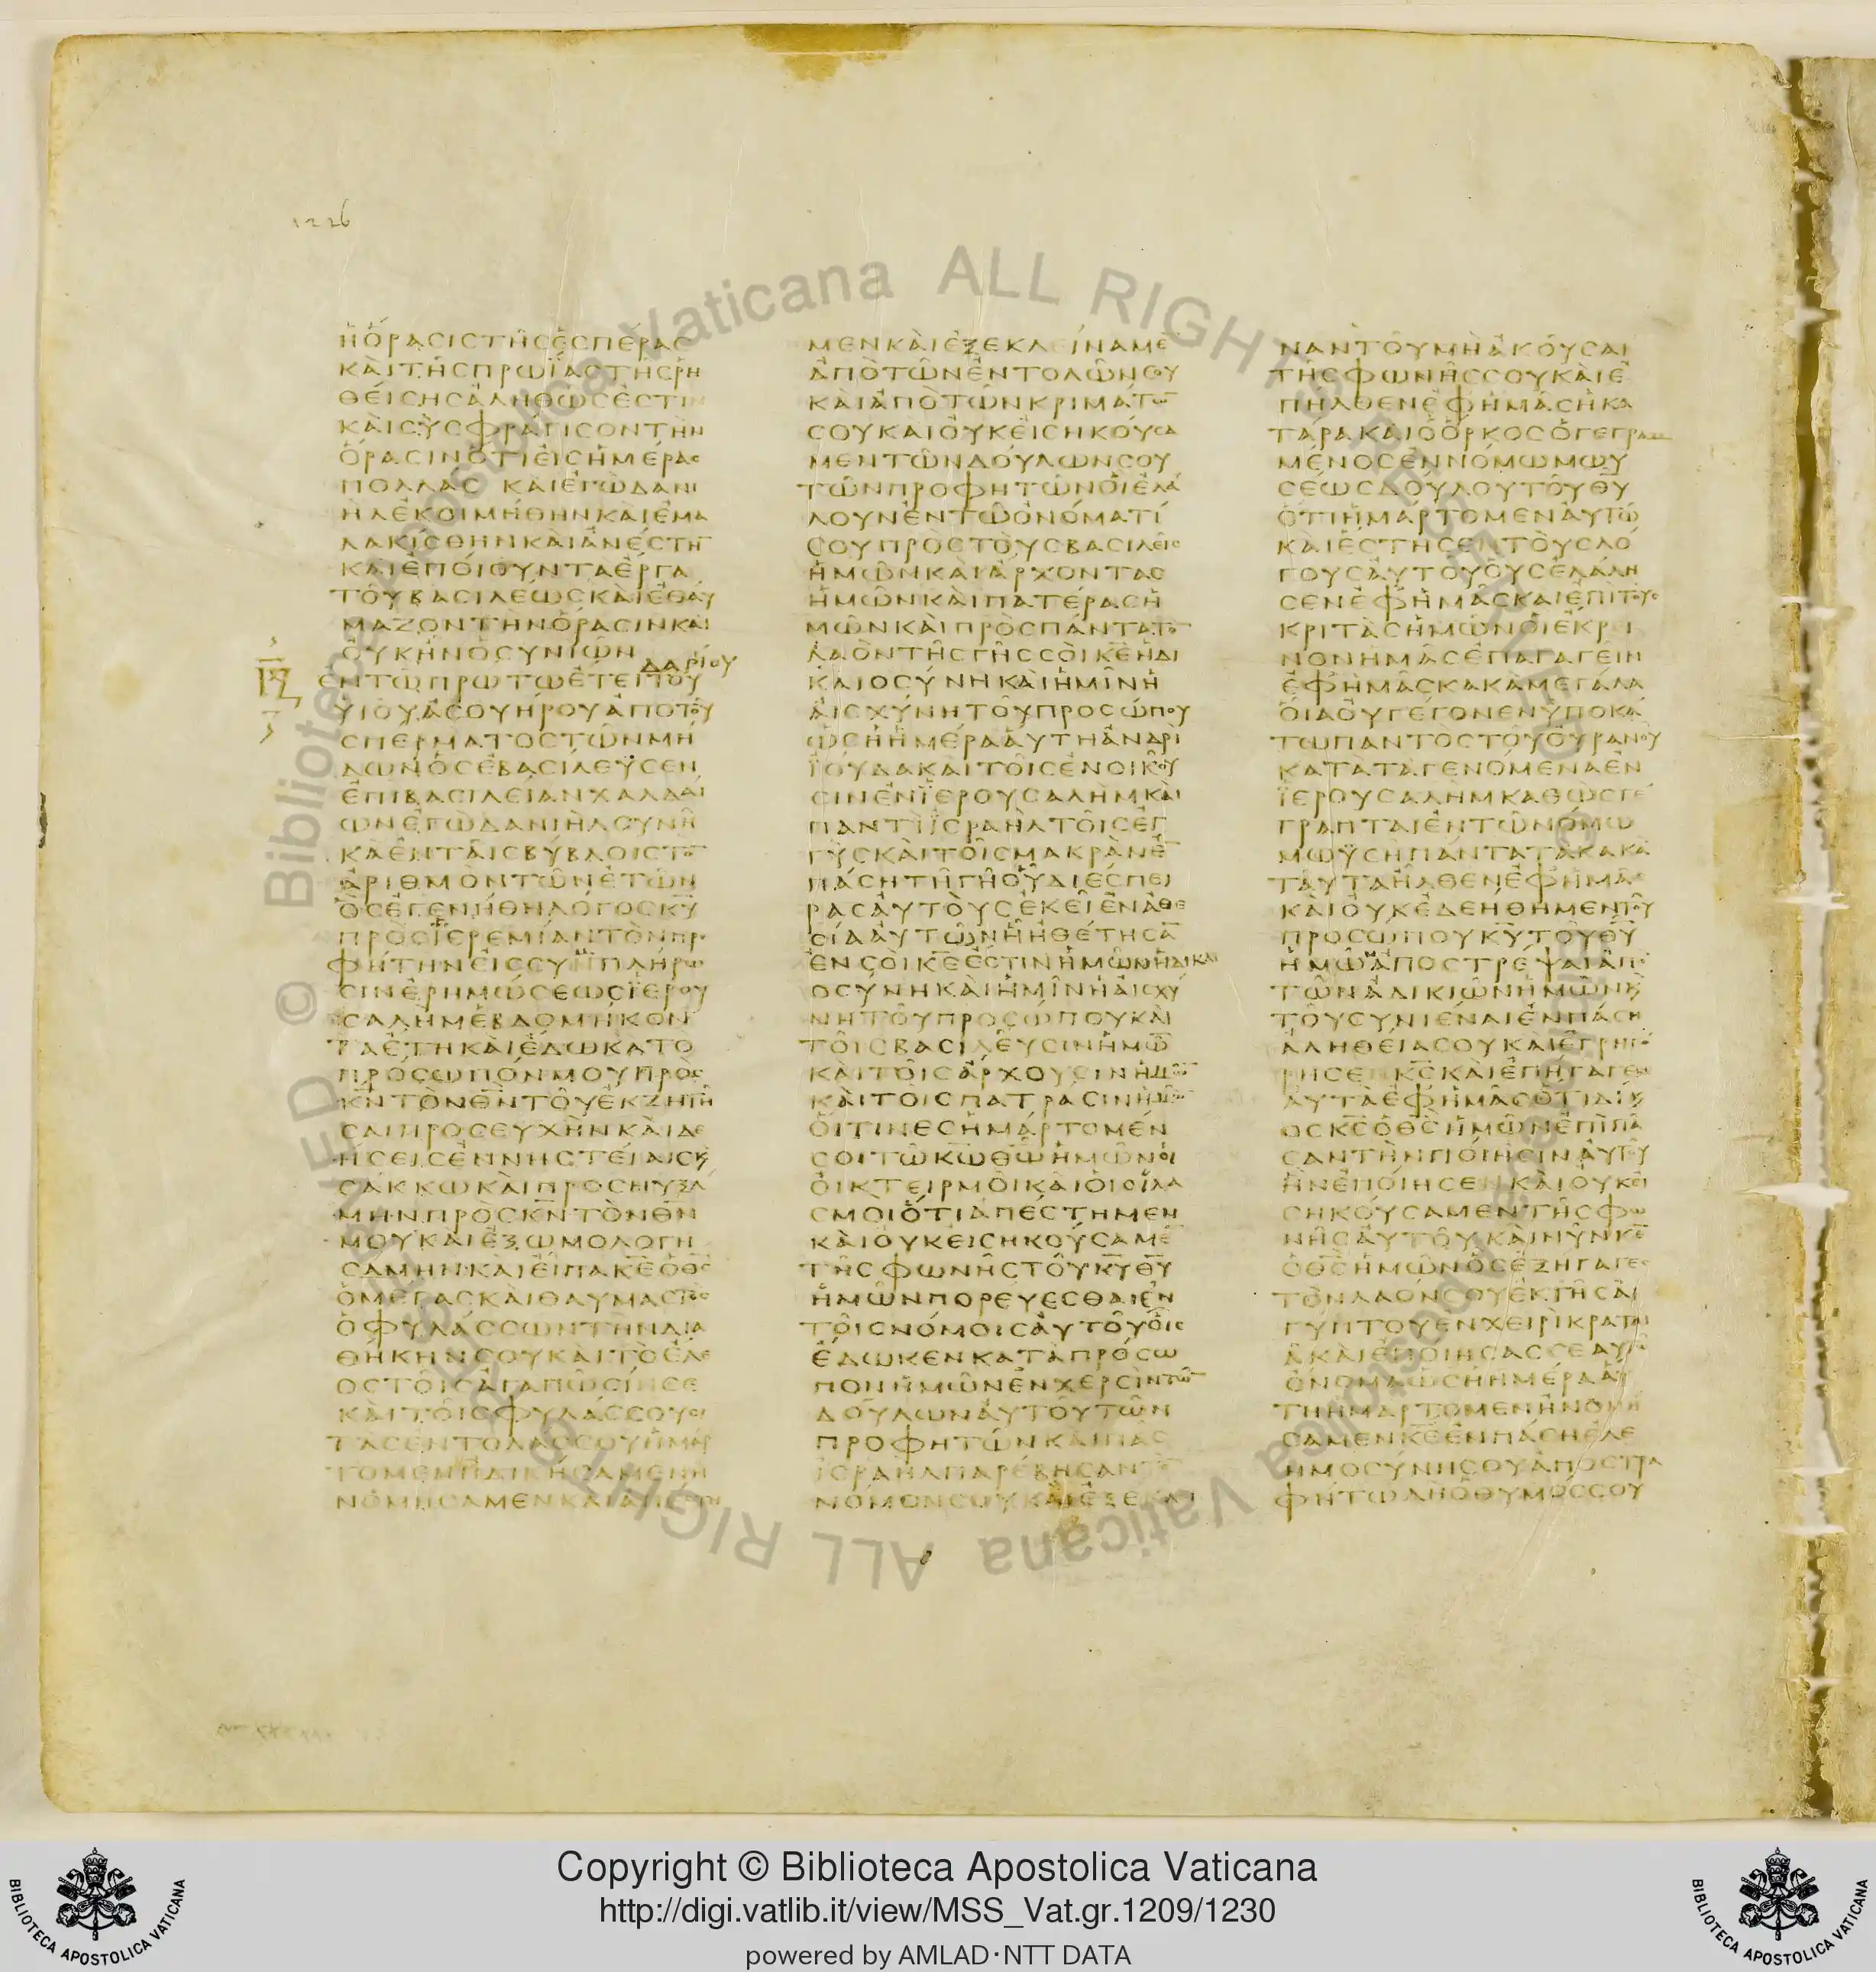 1226
ΗΟΡΑϹΙϹΤΗϹΕϹΠΕΡΑϹ
ΚΑΙΤΗϹΠΡΩΙΑϹΤΗϹΡΗ
ΘΕΙϹΗϹΑΛΗΘΩϹΕϹΤΙΝ
ΚΑΙϹΥϹΦΡΑΓΙϹΟΝΤΗΝ
ΟΡΑϹΙΝΟΤΙΕΙϹΗΜΕΡΑϹ
ΠΟΛΛΑϹ ΚΑΙΕΓΩΔΑΝΙ
ΗΛΕΚΟΙΜΗΘΗΝΚΑΙΕΜΑ
ΛΑΚΙϹΘΗΝΚΑΙΑΝΕϹΤΗ¯
ΚΑΙΕΠΟΙΟΥΝΤΑΕΡΓΑ
ΤΟΥΒΑϹΙΛΕΩϹΚΑΙΕΘΑΥ
ΜΑΖΟΝΤΗΝΟΡΑϹΙΝΚΑΙ
ΟΥΚΗΝΟϹΥΝΙΩΝ
ΕΝΤΩΠΡΩΤΩΕΤΕΙΤΟΥ ΔΑΡΙΟΥ
ΥΙΟΥΑϹΟΥΗΡΟΥΑΠΟΤΟΥ
ϹΠΕΡΜΑΤΟϹΤΩΝΜΗ
ΔΩΝΟϹΕΒΑϹΙΛΕΥϹΕΝ
ΕΠΙΒΑϹΙΛΕΙΑΝΧΑΛΔΑΙ
ΩΝΕΓΩΔΑΝΙΗΛϹΥΝΗ
ΚΑΕΝΤΑΙϹΒΥΒΛΟΙϹΤΟ¯
ΑΡΙΘΜΟΝΤΩΝΕΤΩΝ
ΟϹΕΓΕΝΗΘΗΛΟΓΟϹΚΥ
ΠΡΟϹΙΕΡΕΜΙΑΝΤΟΝΠΡΟ
ΦΗΤΗΝΕΙϹϹΥΜΠΛΗΡΩ
ϹΙΝΕΡΗΜΩϹΕΩϹΙΕΡΟΥ
ϹΑΛΗΜΕΒΔΟΜΗΚΟΝ
ΤΑΕΤΗΚΑΙΕΔΩΚΑΤΟ
ΠΡΟϹΩΠΟΝΜΟΥΠΡΟϹ
ΚΝΤΟΝΘΝΤΟΥΕΚΖΗΤΗ
ϹΑΙΠΡΟϹΕΥΧΗΝΚΑΙΔΕ
ΗϹΕΙϹΕΝΝΗϹΤΕΙΑΙϹΚ
ϹΑΚΚΩΚΑΙΠΡΟϹΗΥΞΑ
ΜΗΝΠΡΟϹΚΝΤΟΝΘΝ
ΜΟΥΚΑΙΕΞΩΜΟΛΟΓΗ
ϹΑΜΗΝΚΑΙΕΙΠΑΚΕΟΘϹ
ΟΜΕΓΑϹΚΑΙΘΑΥΜΑϹΤΟϹ
ΟΦΥΛΑϹϹΩΝΤΗΝΔΙΑ
ΘΗΚΗΝϹΟΥΚΑΙΤΟΕΛΕ
ΟϹΤΟΙϹΑΓΑΠΩϹΙΝϹΕ
ΚΑΙΤΟΙϹΦΥΛΑϹϹΟΥϹΙ
ΤΑϹΕΝΤΟΛΑϹϹΟΥΗΜΑΡ
ΤΟΜΕΝΗΔΙΚΗϹΑΜΕΝΗ
ΝΟΜΗϹΑΜΕΝΚΑΙΑΠΕϹΤΗ
ΜΕΝΚΑΙΕΞΕΚΛΕΙΝΑΜΕ¯
ΑΠΟΤΩΝΕΝΤΟΛΩΝϹΟΥ
ΚΑΙΑΠΟΤΩΝΚΡΙΜΑΤΩ¯
ϹΟΥΚΑΙΟΥΚΕΙϹΗΚΟΥϹΑ
ΜΕΝΤΩΝΔΟΥΛΩΝϹΟΥ
ΤΩΝΠΡΟΦΗΤΩΝΟΙΕΛΑ
ΛΟΥΝΕΝΤΩΟΝΟΜΑΤΙ
ϹΟΥΠΡΟϹΤΟΥϹΒΑϹΙΛΕΙϹ
ΗΜΩΝΚΑΙΑΡΧΟΝΤΑϹ
ΗΜΩΝΚΑΙΠΑΤΕΡΑϹΗ
ΜΩΝΚΑΙΠΡΟϹΠΑΝΤΑΤΟ¯
ΛΑΟΝΤΗϹΓΗϹϹΟΙΚΕΗΔΙ
ΚΑΙΟϹΥΝΗΚΑΙΗΜΙΝΗ
ΑΙϹΧΥΝΗΤΟΥΠΡΟϹΩΠΟΥ
ΩϹΗΗΜΕΡΑΑΥΤΗΑΝΔΡΙ
ΙΟΥΔΑΚΑΙΤΟΙϹΕΝΟΙΚΟΥ
ϹΙΝΕΝΙΕΡΟΥϹΑΛΗΜΚΑΙ
ΠΑΝΤΙΙϹΡΑΗΛΤΟΙϹΕΓ
ΓΥϹΚΑΙΤΟΙϹΜΑΚΡΑΝΕ¯
ΠΑϹΗΤΗΓΗΟΥΔΙΕϹΠΕΙ
ΡΑϹΑΥΤΟΥϹΕΚΕΙΕΝΑΘΕ
ϹΙΑΑΥΤΩΝΗΗΘΕΤΗϹΑ¯
ΕΝϹΟΙΚΕΕϹΤΙΝΗΜΩΝΗΔΙΚΑΙ
ΟϹΥΝΗΚΑΙΗΜΙΝΗΑΙϹΧΥ
ΝΗΤΟΥΠΡΟϹΩΠΟΥΚΑΙ
ΤΟΙϹΒΑϹΙΛΕΥϹΙΝΗΜΩ¯
ΚΑΙΤΟΙϹΑΡΧΟΥϹΙΝΗΜΩ¯
ΚΑΙΤΟΙϹΠΑΤΡΑϹΙΝΗΜΩ¯
ΟΙΤΙΝΕϹΗΜΑΡΤΟΜΕΝ
ϹΟΙΤΩΚΩΘΩΗΜΩΝΟΙ
ΟΙΚΤΕΙΡΜΟΙΚΑΙΟΙΟΙΛΑ
ϹΜΟΙΟΤΙΑΠΕϹΤΗΜΕΝ
ΚΑΙΟΥΚΕΙϹΗΚΟΥϹΑΜΕ¯
ΤΗϹΦΩΝΗϹΤΟΥΚΥΘΥ
ΗΜΩΝΠΟΡΕΥΕϹΘΑΙΕΝ
ΤΟΙϹΝΟΜΟΙϹΑΥΤΟΥΟΙϹ
ΕΔΩΚΕΝΚΑΤΑΠΡΟϹΩ
ΠΟΝΗΜΩΝΕΝΧΕΡϹΙΝΤΩ¯
ΔΟΥΛΩΝΑΥΤΟΥΤΩΝ
ΠΡΟΦΗΤΩΝΚΑΙΠΑϹ
ΙϹΡΑΗΛΠΑΡΕΒΗϹΑΝΤΟ¯
ΝΟΜΟΝϹΟΥΚΑΙΕΞΕΚΛΙ
ΝΑΝΤΟΥΜΗΑΚΟΥϹΑΙ
ΤΗϹΦΩΝΗϹϹΟΥΚΑΙΕ
ΠΗΛΘΕΝΕΦΗΜΑϹΗΚΑ
ΤΑΡΑΚΑΙΟΟΡΚΟϹΟΓΕΓΡΑΜ
ΜΕΝΟϹΕΝΝΟΜΩΜΩΥ
ϹΕΩϹΔΟΥΛΟΥΤΟΥΘΥ
ΟΤΙΗΜΑΡΤΟΜΕΝΑΥΤΩ
ΚΑΙΕϹΤΗϹΕΝΤΟΥϹΛΟ
ΓΟΥϹΑΥΤΟΥΟΥϹΕΛΑΛΗ
ϹΕΝΕΦΗΜΑϹΚΑΙΕΠΙΤΟΥϹ
ΚΡΙΤΑϹΗΜΩΝΟΙΕΚΡΙ
ΝΟΝΗΜΑϹΕΠΑΓΑΓΕΙΝ
ΕΦΗΜΑϹΚΑΚΑΜΕΓΑΛΑ
ΟΙΑΟΥΓΕΓΟΝΕΝΥΠΟΚΑ
ΤΩΠΑΝΤΟϹΤΟΥΟΥΡΑΝΟΥ
ΚΑΤΑΤΑΓΕΝΟΜΕΝΑΕΝ
ΙΕΡΟΥϹΑΛΗΜΚΑΘΩϹΓΕ
ΓΡΑΠΤΑΙΕΝΤΩΝΟΜΩ
ΜΩΥϹΗΠΑΝΤΑΤΑΚΑΚΑ
ΤΑΥΤΑΗΛΘΕΝΕΦΗΜΑϹ
ΚΑΙΟΥΚΕΔΕΗΘΗΜΕΝΤΟΥ
ΠΡΟϹΩΠΟΥΚΥΤΟΥΘΥ
ΗΜΩΝΑΠΟϹΤΡΕΨΑΙΑΠΟ
ΤΩΝΑΔΙΚΙΩΝΗΜΩΝΚ
ΤΟΥϹΥΝΙΕΝΑΙΕΝΠΑϹΗ
ΑΛΗΘΕΙΑϹΟΥΚΑΙΕΓΡΗΓΟ
ΡΗϹΕΝΚϹΚΑΙΕΠΗΓΑΓΕΝ
ΑΥΤΑΕΦΗΜΑϹΟΤΙΔΙΚ
ΟϹΚϹΟΘϹΗΜΩΝΕΠΙΠΑ
ϹΑΝΤΗΝΠΟΙΗϹΙΝΑΥΤΟΥ
ΗΝΕΠΟΙΗϹΕΝΚΑΙΟΥΚΕΙ
ϹΗΚΟΥϹΑΜΕΝΤΗϹΦΩ
ΝΗϹΑΥΤΟΥΚΑΙΝΥΝΚΕ
ΟΘϹΗΜΩΝΟϹΕΞΗΓΑΓΕϹ
ΤΟΝΛΑΟΝϹΟΥΕΚΓΗϹΑΙ
ΓΥΠΤΟΥΕΝΧΕΙΡΙΚΡΑΤΑΙ
ΑΚΑΙΕΠΟΙΗϹΑϹϹΕΑΥΤΩ
ΟΝΟΜΑΩϹΗΗΜΕΡΑΑΥ
ΤΗΗΜΑΡΤΟΜΕΝΗΝΟΜΗ
ϹΑΜΕΝΚΕΕΝΠΑϹΗΕΛΕ
ΗΜΟϹΥΝΗϹΟΥΑΠΟϹΤΡΑ
ΦΗΤΩΔΗΟΘΥΜΟϹϹΟΥ
© Biblioteca Apostolica Vaticana ALL RIGHTS RESERVED
Copyright © Biblioteca Apostolica Vaticana
http://digi.vatlib.it/view/MSS_Vat.gr.1209/1230
powered by AMLAD·NTT DATA
BIBLIOTECA APOSTOLICA VATICANA
BIBLIOTECA APOSTOLICA VATICANA